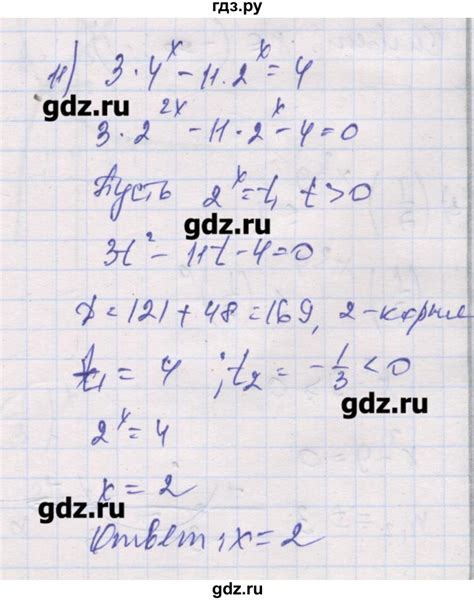 гдз.ру
11) 3·4^x - 11·2^x = 4
gdz.ru
3·2^{2x} - 11·2^x - 4 = 0
Пусть 2^x = t, t > 0
gdz.ru
3t^2 - 11t - 4 = 0
D = 121 + 48 = 169, 2 - корня
t_1 = 4 ; t_2 = -1/3 < 0
gdz.ru
2^x = 4
x = 2
gdz.ru
Ответ: x = 2
gdz.ru
gdz.ru